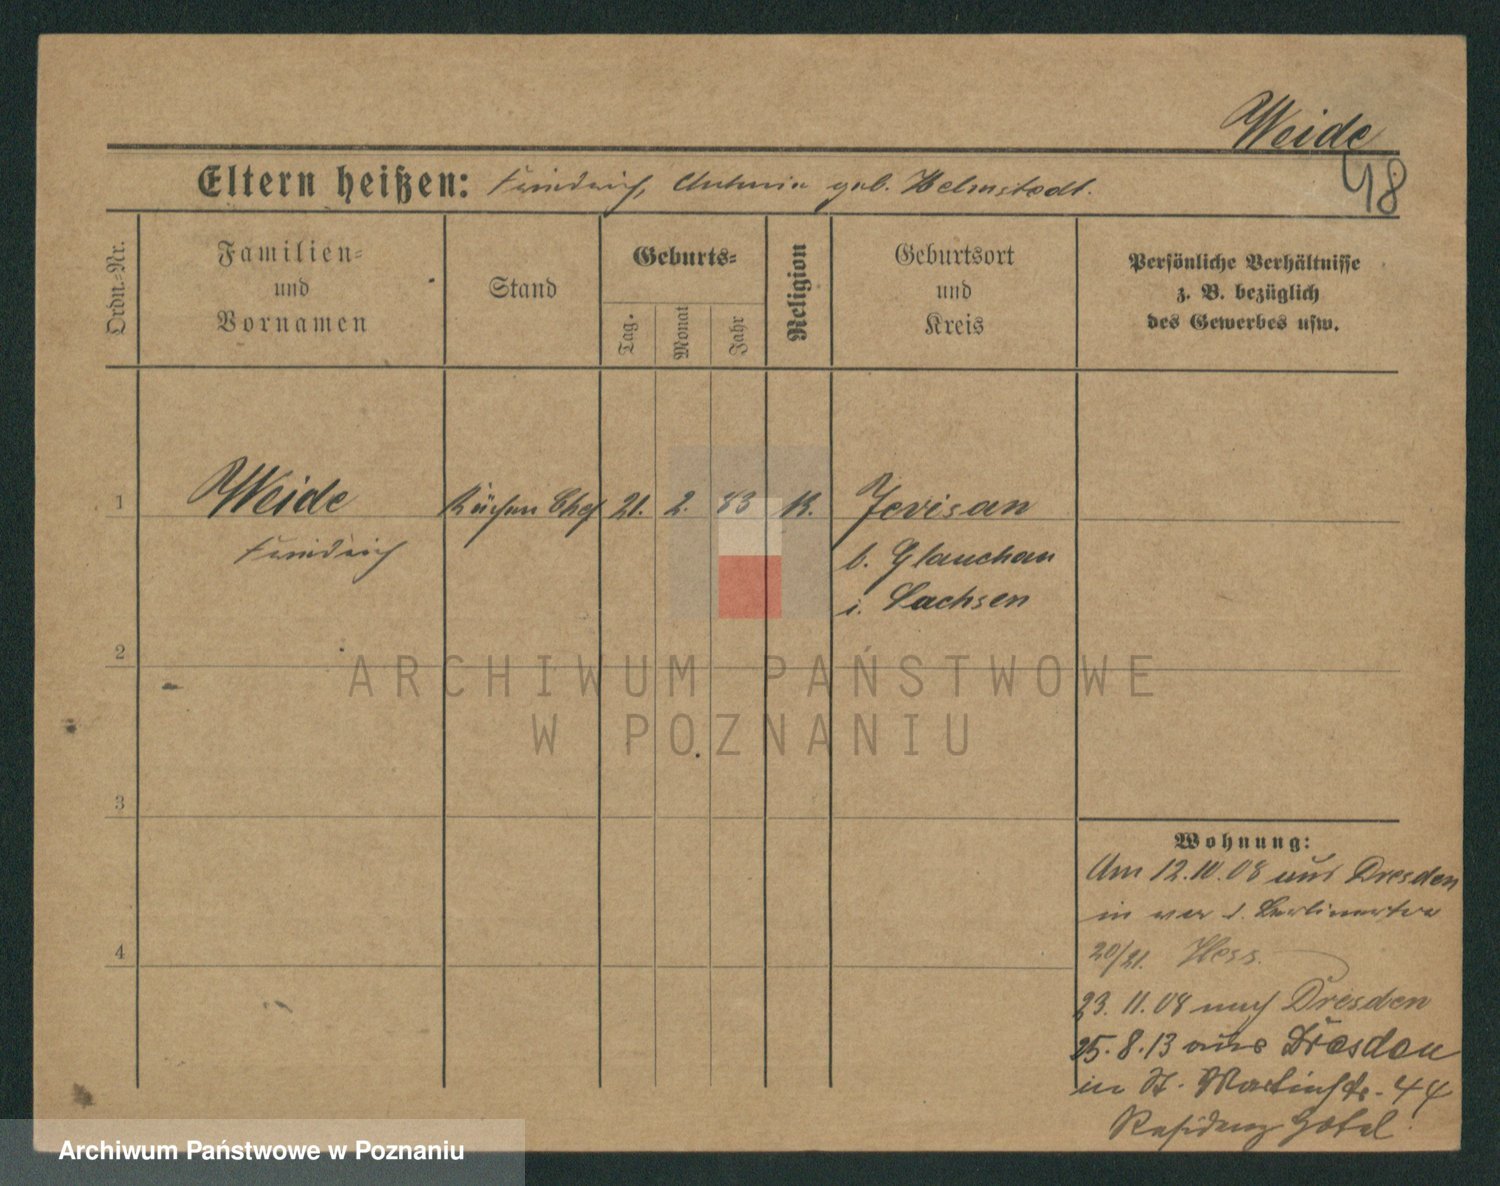 Weide
48
Eltern heißen: Friedrich, Antonie geb. Helmstedt.
Ordn.-Nr.
Familien-
und
Vornamen
Stand
Geburts-
Tag.
Monat
Jahr
Religion
Geburtsort
und
Kreis
Persönliche Verhältnisse
z. B. bezüglich
des Gewerbes usw.
1
Weide Küchen Chef 21. 2. 83 K. Jerisan
Friedrich
b. Glauchau
i. Sachsen
2
3
4
ARCHIWUM PAŃSTWOWE
W POZNANIU
Wohnung:
Am 12.10.08 aus Dresden
in Berlinerstr
20/21. Hess.
23. 11. 08 nach Dresden
25. 8. 13 aus Dresden
in St. Martinstr. 44
Residenz Hotel
Archiwum Państwowe w Poznaniu